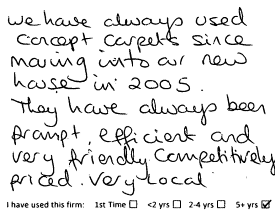 we have always used
concept carpets since
moving into our new
house in 2005.
They have always been
prompt, efficient and
very friendly. Competitively
priced. very Local
I have used this firm: 1st Time ☐ <2 yrs ☐ 2-4 yrs ☐ 5+ yrs ☑